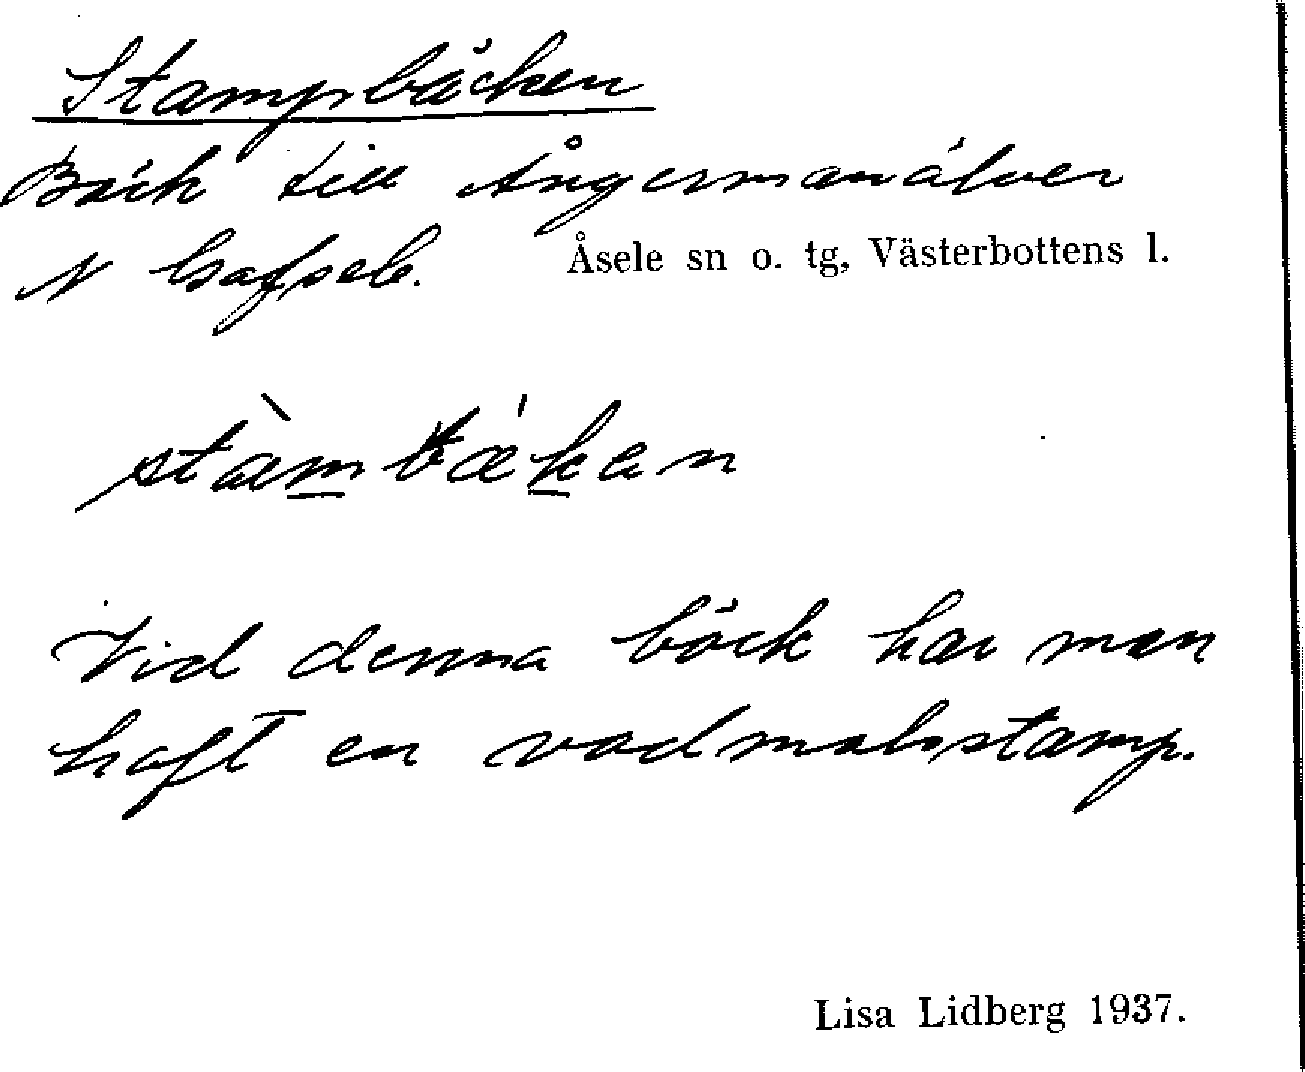 Stampbäcken
Bäck till Ångermanälven
N Gafsele. Åsele sn o. tg, Västerbottens l.
stàmbǽkan
Vid denna bäck har man
haft en vadmalsstamp.
Lisa Lidberg 1937.